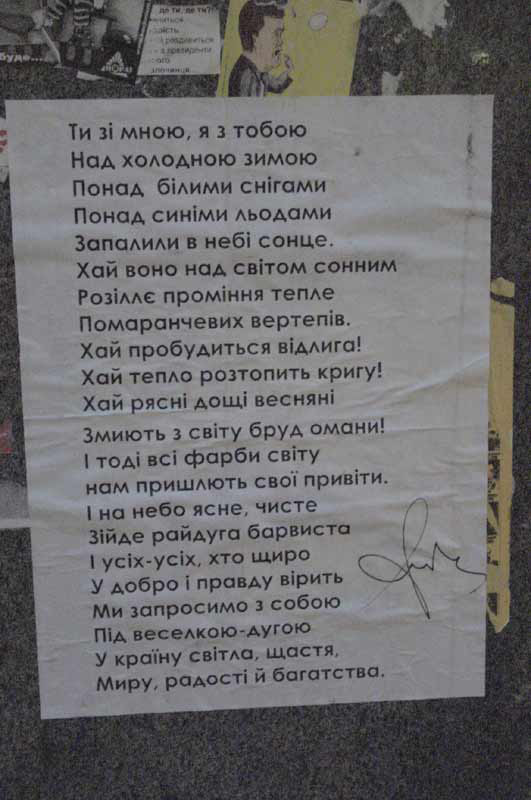 де ти, де ти?
з президенти
злочинця
Ти зі мною, я з тобою
Над холодною зимою
Понад білими снігами
Понад синіми льодами
Запалили в небі сонце.
Хай воно над світом сонним
Розіллє проміння тепле
Помаранчевих вертепів.
Хай пробудиться відлига!
Хай тепло розтопить кригу!
Хай рясні дощі весняні
Змиють з світу бруд омани!
І тоді всі фарби світу
нам пришлють свої привіти.
І на небо ясне, чисте
Зійде райдуга барвиста
І усіх-усіх, хто щиро
У добро і правду вірить
Ми запросимо з собою
Під веселкою-дугою
У країну світла, щастя,
Миру, радості й багатства.